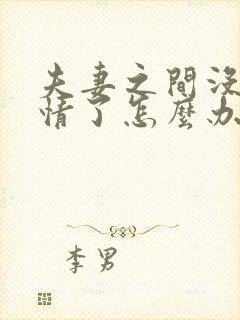 夫妻之間沒
情了怎麼办
李男